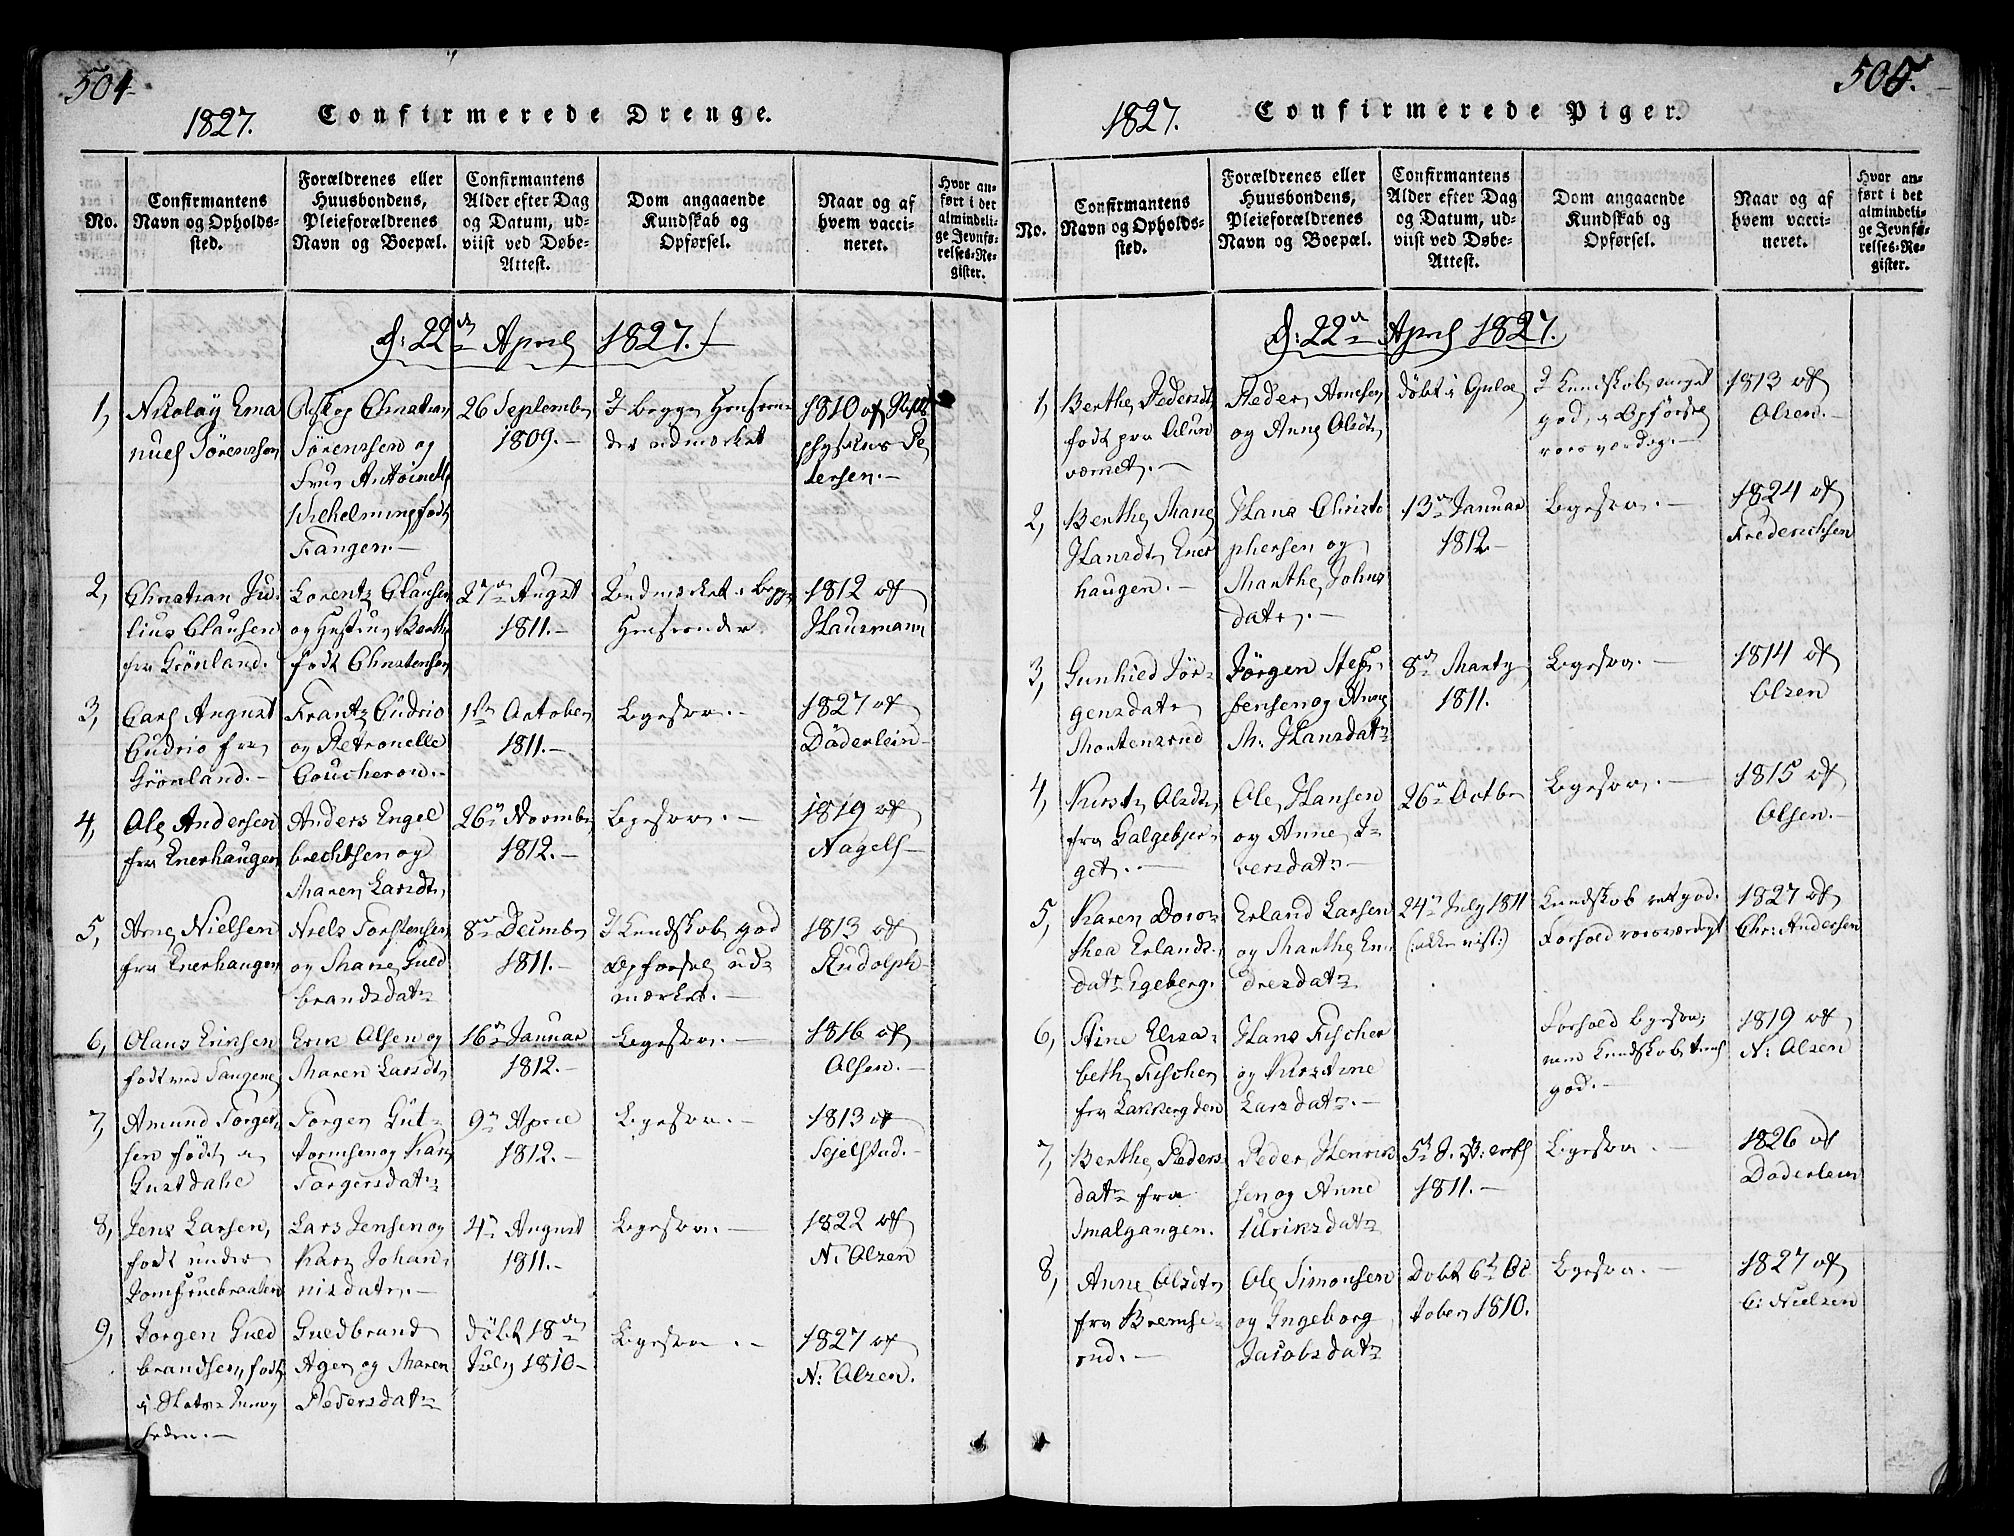 504.
1827. Confirmerede Drenge.
No.
Confirmantens
Navn og Opholds-
sted.
Forældrenes eller
Huusbondens,
Pleieforældrenes
Navn og Boepæl.
Confirmantens
Alder efter Dag
og Datum, ud-
viist ved Døbe-
Attest.
Dom angaaende
Kundskab og
Opførsel.
Naar og af
hvem vacci-
neret.
Hvor an-
ført i det
almindeli-
ge Jevnfø-
relses-Re-
gister.
D: 22de April 1827.
1,
Nikolay Ema
nuel Sörenssen
Christian
Sörenssen og
Frue Antoinette
Wilhelmine født
Fangen.-
26 September
1809.-
I begge Henseen
der udmærket
1810 af
physicus Pe
tersen.-
2,
Christian Ju-
lius Clausen
fra Grönland.
Lorentz Clausen
og Hustrue Berthe
født Christensen
27de August
1811.-
Udmærket i begge
Henseender.
1812 af
Hausmann
3,
Carl August
Cudrio fra
Grönland.-
Frantz Cudrio
og Petronelle
Coucheron.-
1ste October
1811.-
Ligesaa.-
1827 af
Döderlein-
4,
Ole Andersen
fra Enerhaugen
Anders Engel
brechtsen og
Maren Larsdtr
26de Novembr
1812.-
Ligesaa.-
1819 af
Nagel-
5,
Arne Nielsen
fra Enerhaugen
Niels Torstensen
og Marie Guld
brandsdatr
8de Decembr
1811.-
I Kundskab god
Opførsel ud-
mærket.-
1813 af
Rudolph-
6,
Olaus Eriksen
født ved Tangene
Erik Olsen og
Maren Larsdtr
16de Januar
1812.-
Ligesaa.-
1816 af
Olsen.-
7,
Amund Torger-
sen født i
Gusdahl
Torger Gut-
tormsen og Kari
Torgersdatr
9de April
1812.-
Ligesaa.-
1813 af
Sejelstad.-
8,
Jens Larsen,
født under
Jomfruebraaten
Lars Jensen og
Kari Johan-
nisdatr.-
4de August
1811.-
Ligesaa.-
1822 af
N: Olsen
9,
Jörgen Guld
brandsen, født
Guldbrand
Ager og Maren
Pedersdatr
döbt 18de
July 1810-
Ligesaa.-
1827 af
N: Olsen.
505.
1827. Confirmerede Piger.
No.
Confirmantens
Navn og Opholds-
sted.
Forældrenes eller
Huusbondens,
Pleieforældrenes
Navn og Boepæl.
Confirmantens
Alder efter Dag
og Datum, ud-
viist ved Døbe-
Attest.
Dom angaaende
Kundskab og
Opførsel.
Naar og af
hvem vacci-
neret.
Hvor an-
ført i det
almindeli-
ge Jevnfø-
relses-Re-
gister.
D: 22de April 1827.
1,
Berthe Pedersdtr
født paa Alun
værket.-
Peder Arnesen
og Anne Olsdtr
döbt i
I Kundskab meget
god, i Opførsel
roesværdig.-
1813 af
Olsen.-
2,
Berthe Marie
Hansdtr Ener
haugen.-
Hans Christo
phersen og
Marthe Johns
datr.-
13de Januar
1812-
Ligesaa.-
1824 af
Frederichsen
3,
Gunhild Jör-
gensdatr
Mortensrud
Jörgen Stef-
fensen og Anne
M: Hansdatr
8de Martz
1811.
Ligesaa.-
1814 af
Olsen
4,
Kirsti Olsdtr
fra Galgebjer-
get.-
Ole Hansen
og Anne I-
versdatr-
26de Octbr
Ligesaa.-
1815 af
Olsen.-
5,
Karen Doro-
thea Erlands-
datr Egeberg.
Erland Larsen
og Marthe En-
dresdatr
24de July 1811
(:ikke vist:)
Kundskab ret god.
Forhold roesværdigt
1827 af
Chr: Andersen
6,
Stine Elisa-
beth Fischer
fra Lakkergden
Hans Fischer
og Kirstine
Larsdatr.-
Forhold ligesaa,
men Kundskab
god.-
1819 af
N: Olsen
7,
Berthe Peders
datr fra
Smalgangen.
Peder Henrik
sen og Anne
Ulriksdatr
1811.-
Ligesaa.-
1826 af
Döderlein
8,
Anne Olsdtr
fra Bremse-
rud.-
Ole Simonsen
og Ingeborg
Jacobsdatr
Döbt 6te Oc
tober 1810.
Ligesaa.-
1827 af
C: Nielsen